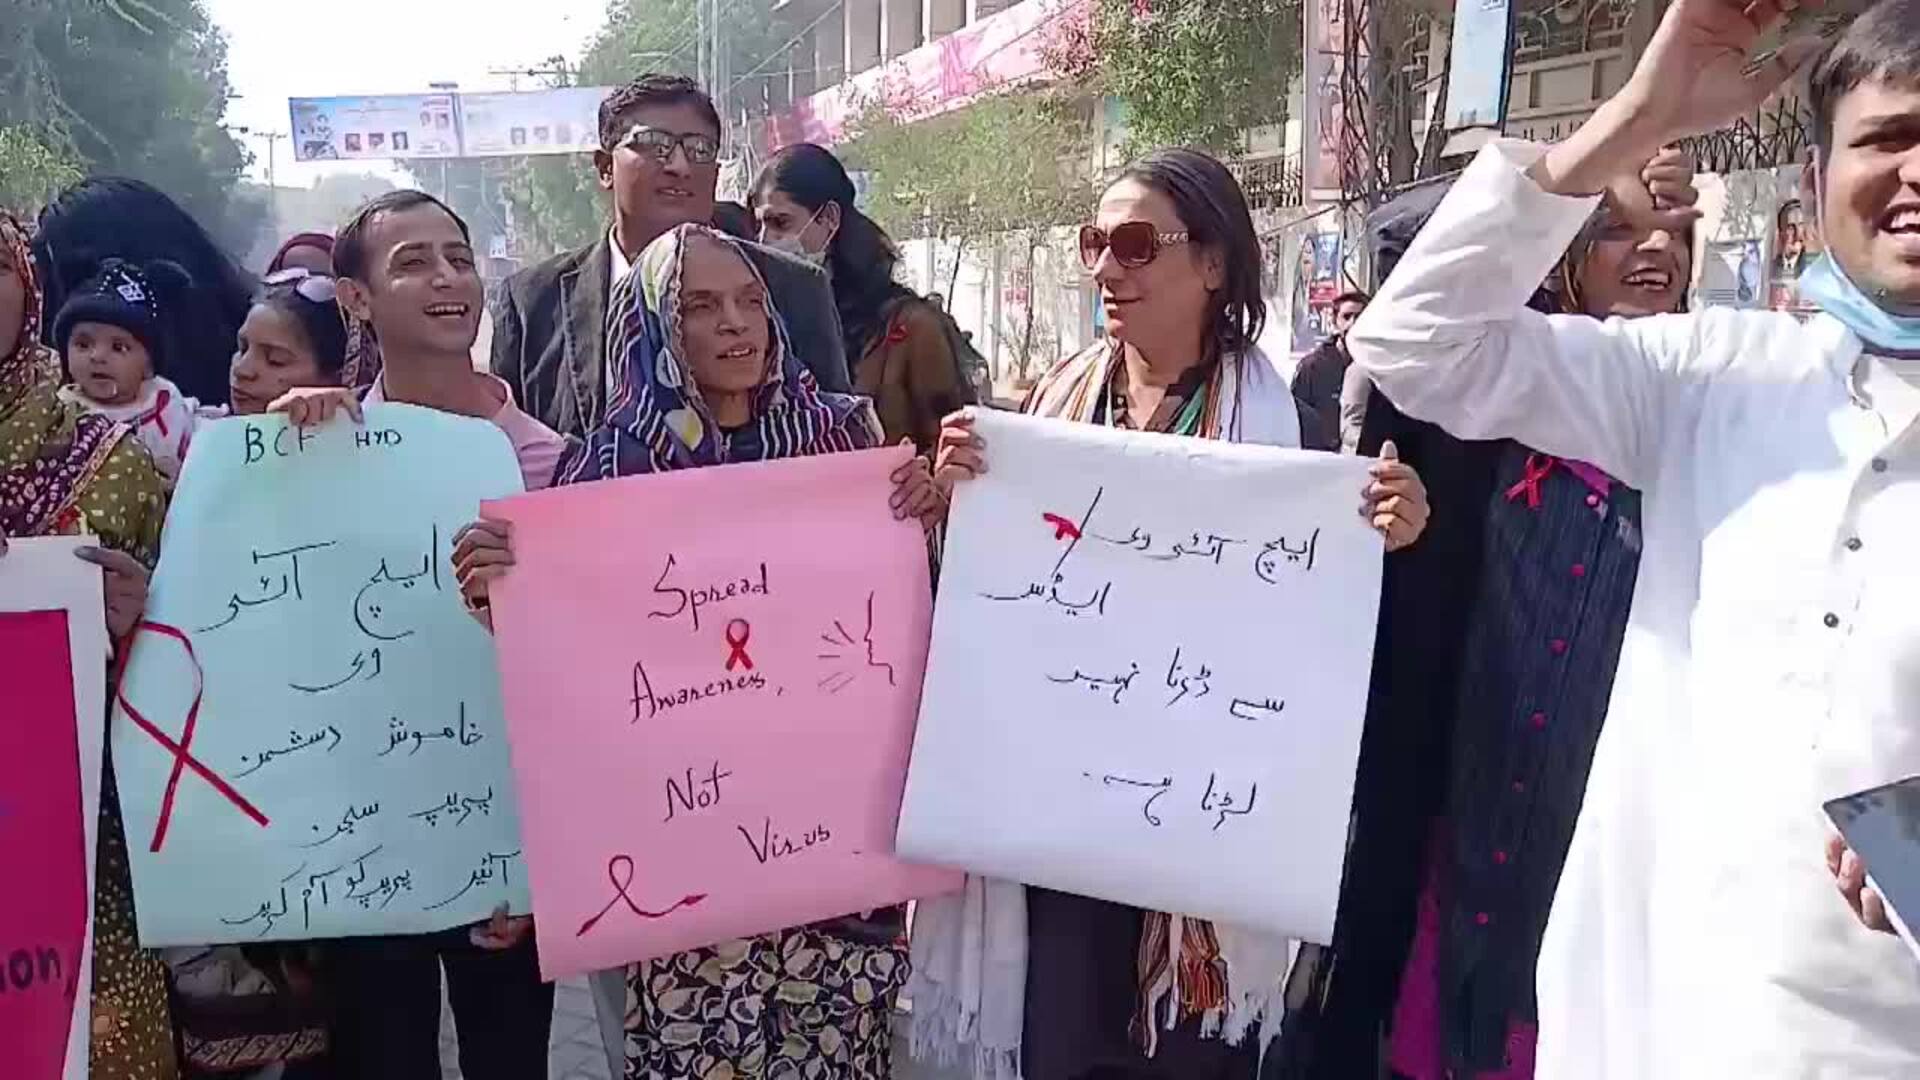 BCF HYD
ایچ آئی
وی
خاموش دشمن
پریپ سجن
آئیں پریپ کو آم کریں
Spread
Awareness,
Not
Virus.
ایچ آئی وی /
ایڈس
سے ڈرنا نہیں
لڑنا ہے۔
ion,